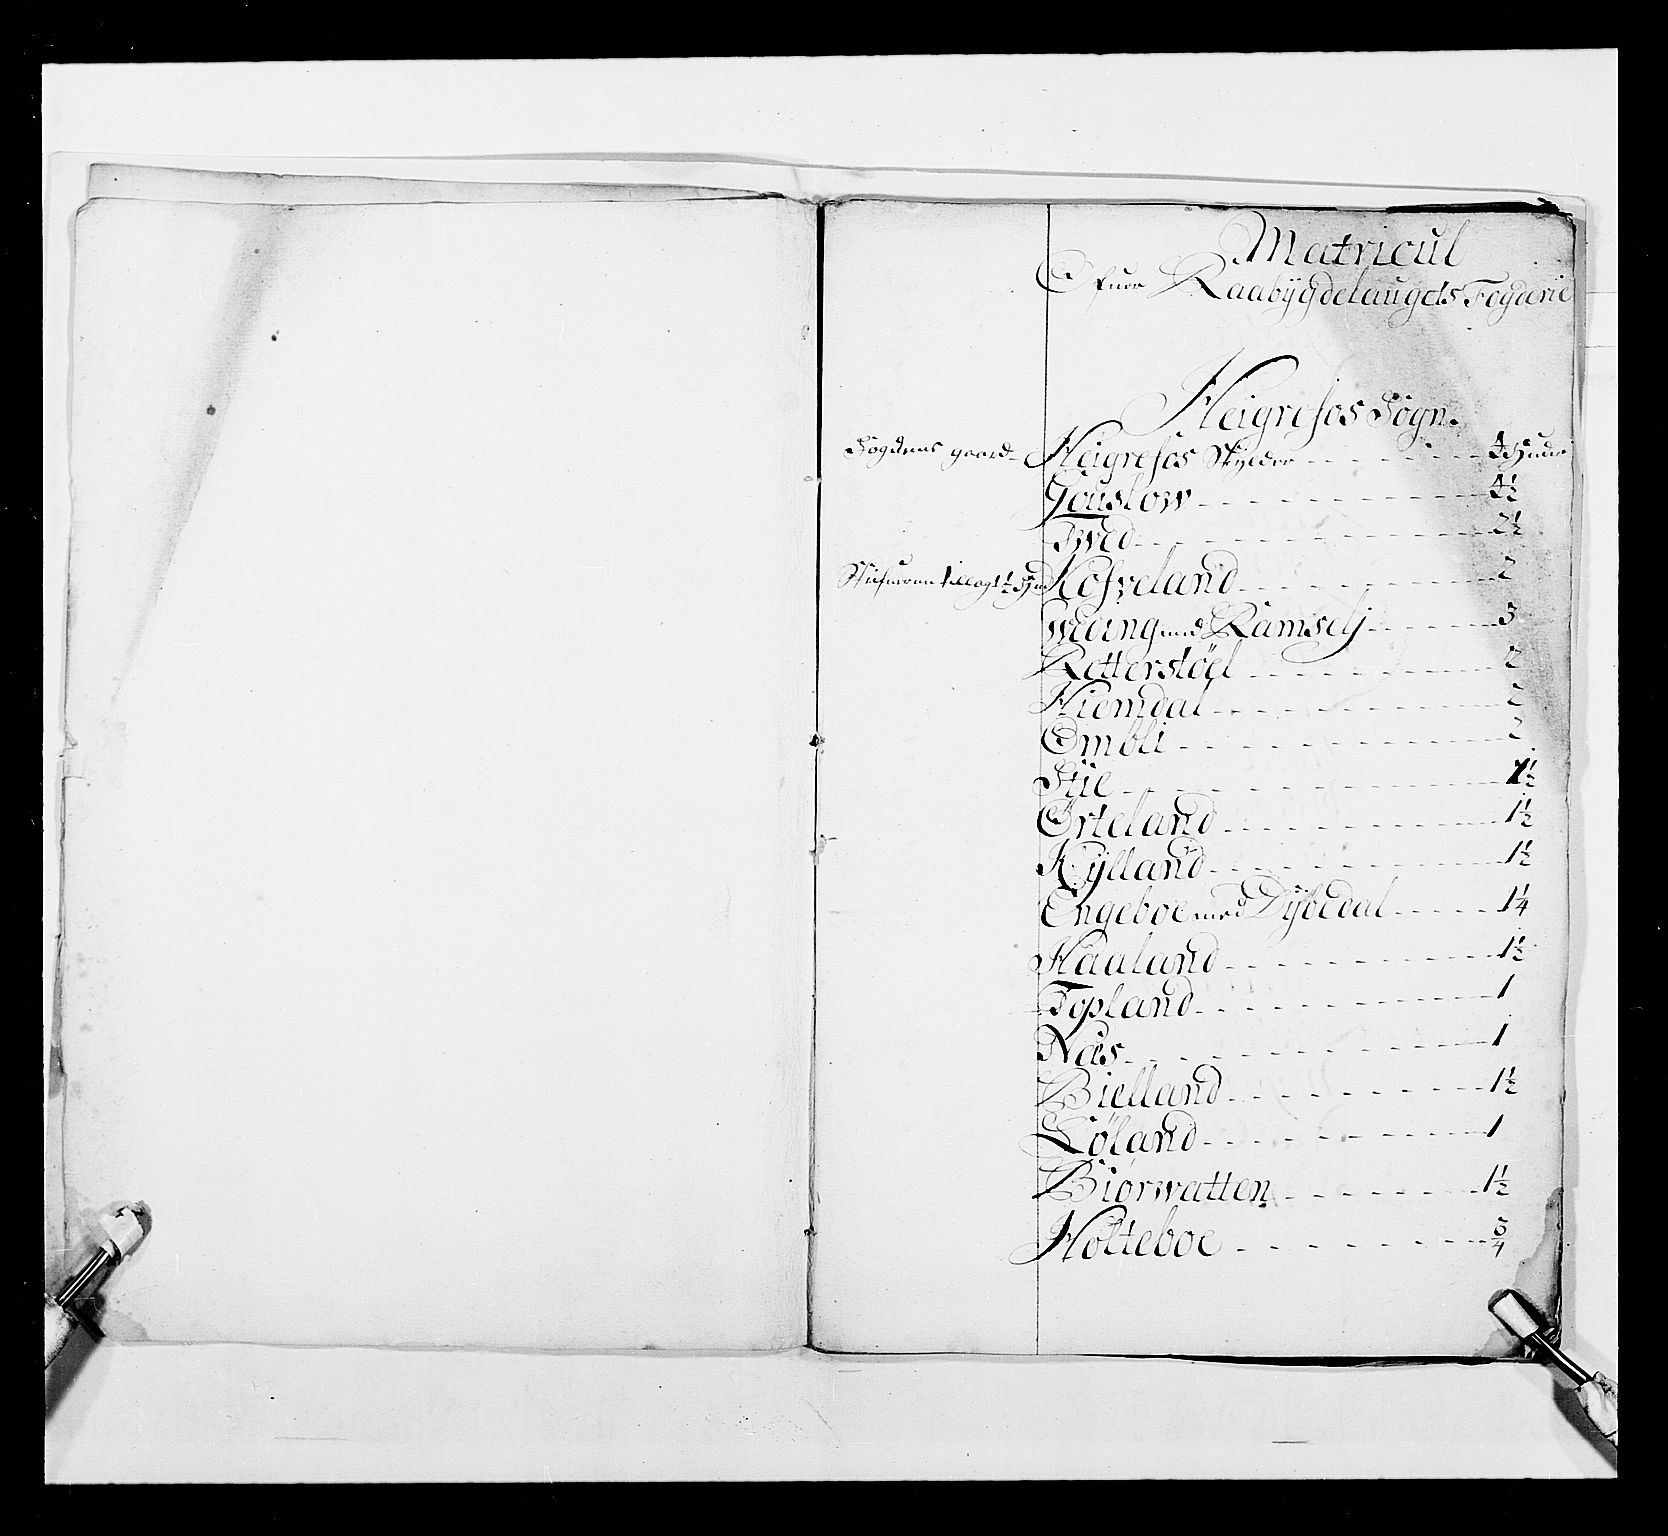 Matricul
Ofuer Raabygdelaugets Fogderie
Heigrefos Sogn.
Fogdens gaard - Heigrefos Skylder - - - - 4 Huder
Gouslow - - - - 4½
Tved - - - - 2½
tillagt ½ Hud Kosveland - - - - 2
Weding med Ramselj - - - - 3
Retterstöel - - - - 2
Hiemdal - - - - 2
Ombli - - - - 2
Stie - - - - 1½
Örteland - - - - 1½
Kylland - - - - 1½
Engeboe med Dybedal - - - - 1¼
Haaland - - - - 1½
Topland - - - - 1
Næs - - - - 1
Bielland - - - - 1½
Löland - - - - 1
Biorwatten - - - - 1½
Holteboe - - - - ¾